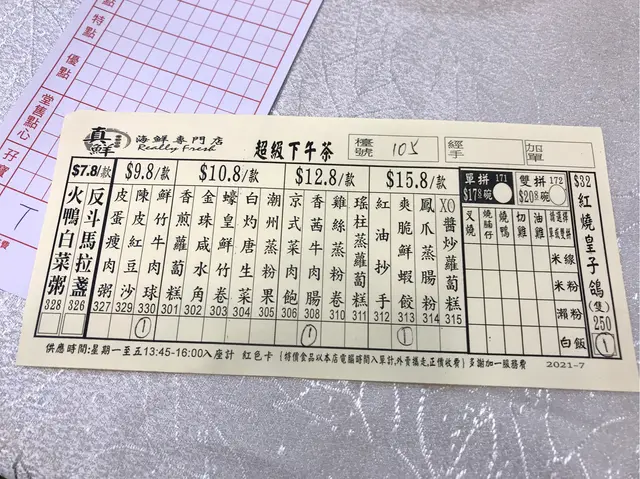 特點
優點
堂售點心
真鮮
海鮮專門店
Really Fresh
超級下午茶
檯號
105
經手
加單
$7.8/款
火鴨白菜粥 328
反斗馬拉盞 326
$9.8/款
皮蛋瘦肉粥 327
陳皮紅豆沙 329
鮮竹牛肉球 330
①
香煎蘿蔔糕 301
$10.8/款
金珠咸水角 302
蠔皇鮮竹卷 303
白灼唐生菜 304
潮州蒸粉果 305
$12.8/款
京式菜肉飽 306
香茜牛肉腸 308
①
雞絲蒸粉卷 310
瑤柱蒸蘿蔔糕 311
$15.8/款
紅油抄手 312
爽脆鮮蝦餃 313
①
鳳爪蒸腸粉 314
XO醬炒蘿蔔糕 315
單拼 171
$17.8碗
雙拼 172
$20.8碗
叉燒
燒腩仔
燒鴨
切雞
油雞
米線
米粉
瀨粉
白飯
$32
紅燒皇子鴿(隻)
250
①
供應時間:星期一至五13:45-16:00入座計 紅色卡 {特價食品以本店電腦時間入單計,外賣攜走,正價收費} 多謝加一服務費
2021-7